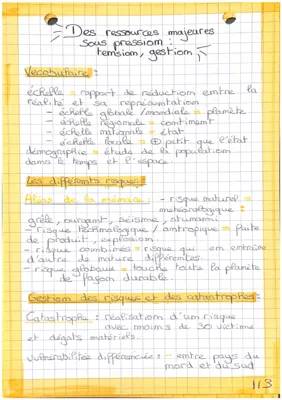 Des ressources majeures
sous pression :
tension, gestion
Vocabulaire :
échelle = rapport de réduction entre la
réalité et sa représentation
- échelle globale / mondiale = planète
- échelle régionale = continent
- échelle nationale = état
- échelle locale = ⊕ petit que l'état
démographie = étude de la population
dans le temps et l'espace.
Les différents risques :
Aléas de la : - risque naturel =
météorologique :
grêle, ouragant, séisme, stunami.
- risque technologique / antropique = fuite
de produit, explosion
- risque combinés = risque qui en entraîne
d'autre de nature différentes.
- risque globaux = touche toute la planète
de façon durable
Gestion des risques et des catastrophes :
Catastrophe : réalisation d'un risque
avec moins de 30 victime
et dégats matériels.
vulnérabilitée différenciée : - entre pays du
nord et du sud
1/3